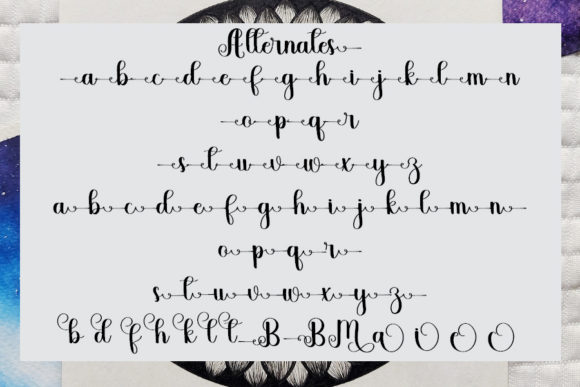 Alternates
a b c d e f g h i j k l m n
o p q r
s t u v w x y z
a b c d e f g h i j k l m n
o p q r
s t u v w x y z
b d f h k l t B B M a i e o